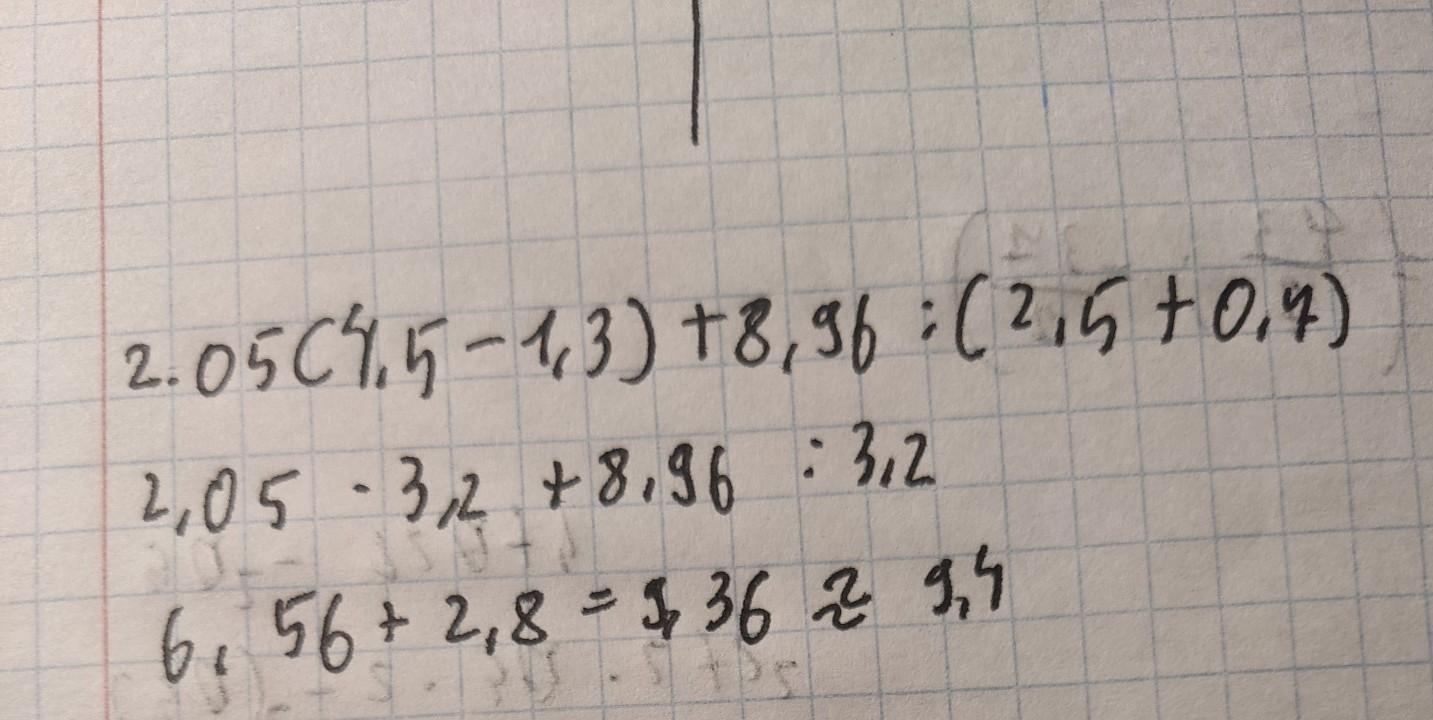 2.05(4,5-1,3)+8,96:(2,5+0,7)
2,05 · 3,2 +8,96 :3,2
6,56+2,8=9,36≈9,4